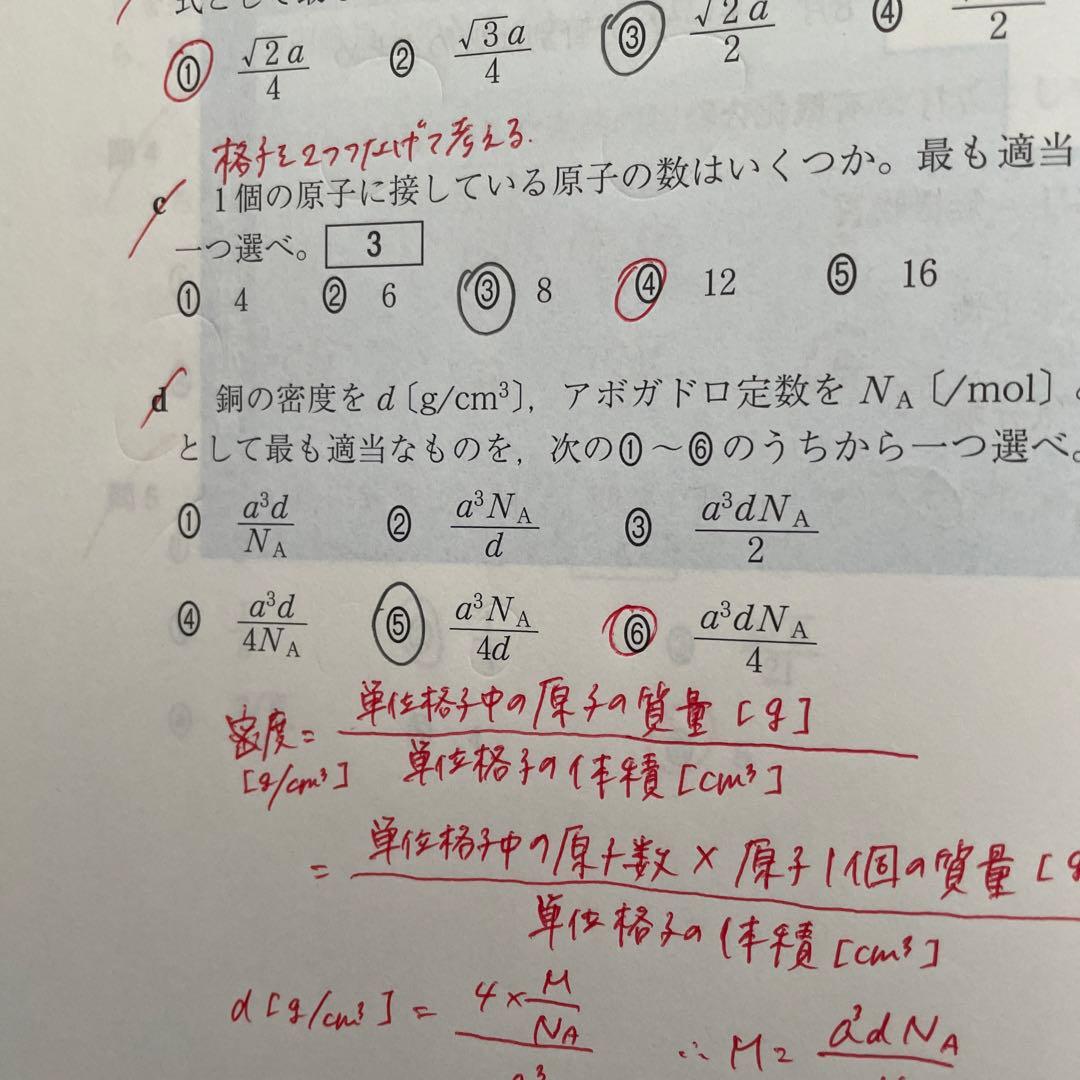 式として最
① √2a/4 ② √3a/4 ③ √2a/2 ④ /2
格子を2つつなげて考える.
c 1個の原子に接している原子の数はいくつか。最も適当
一つ選べ。 3
① 4 ② 6 ③ 8 ④ 12 ⑤ 16
d 銅の密度を d〔g/cm³〕, アボガドロ定数を N_A〔/mol〕
として最も適当なものを, 次の①～⑥のうちから一つ選べ。
① a³d/N_A ② a³N_A/d ③ a³dN_A/2
④ a³d/4N_A ⑤ a³N_A/4d ⑥ a³dN_A/4
密度[g/cm³] = 単位格子中の原子の質量[g]/単位格子の体積[cm³]
= 単位格子中の原子数×原子1個の質量[g/単位格子の体積[cm³]
d[g/cm³] = 4×M/N_A/a³ ∴ M = a³dN_A